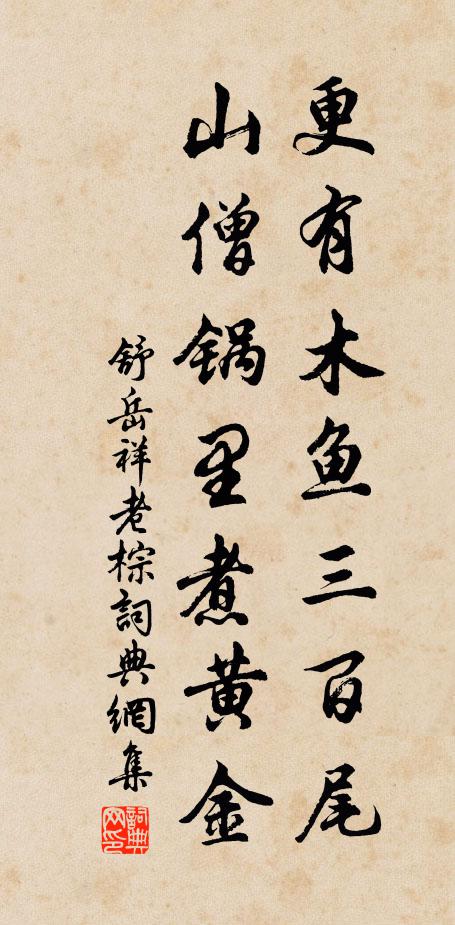 更有木鱼三百尾
山僧锅里煮黄金
舒岳祥老棕詞典網集
詞典
网印